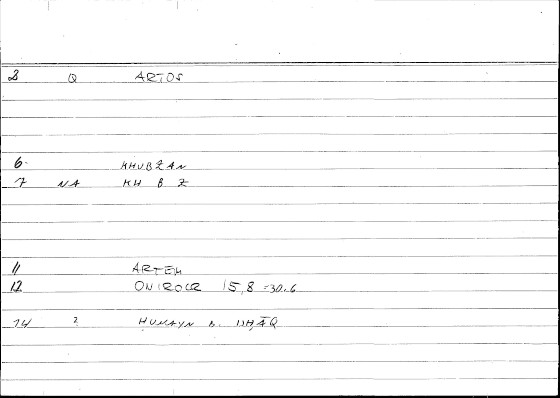 2 Q ARTOS
6. KHUBZAN
7 NA KH B Z
11 ARTEM
12 ONIROCR 15,8 = 30.6
14 ? HUNAYN B. ISHĀQ